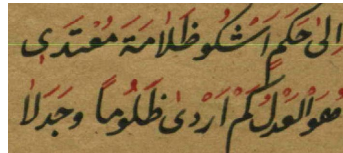 اِلىٰ حَكَمٍ اَشْكُو ظَلَامَةَ مُعْتَدِى
هُوَ الْعَدْلُ كَمْ اَرْدىٰ ظَلُوماً وجَدَلاٰ